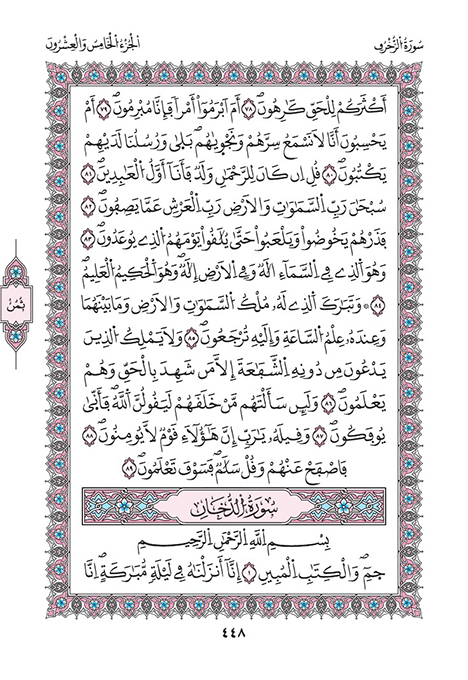 سُورَةُ الزُّخْرُفِ
الجُزْءُ الخَامِسُ وَالعِشْرُونَ
أَكْثَرَكُمْ لِلْحَقِّ كَٰرِهُونَۖ ٧٨ أَمَ اَبْرَمُوٓاْ أَمْراٗ فَإِنَّا مُبْرِمُونَۖ ٧٩ أَمْ
يَحْسِبُونَ أَنَّا لَا نَسْمَعُ سِرَّهُمْ وَنَجْوَيٰهُمۖ بَلَىٰ وَرُسُلُنَا لَدَيْهِمْ
يَكْتُبُونَۖ ٨٠ قُلِ اِن كَانَ لِلرَّحْمَٰنِ وَلَدٞ فَأَنَآ أَوَّلُ اُ۬لْعَٰبِدِينَۖ ٨١
سُبْحَٰنَ رَبِّ اِ۬لسَّمَٰوَٰتِ وَالَارْضِ رَبِّ اِ۬لْعَرْشِ عَمَّا يَصِفُونَۖ ٨٢
فَذَرْهُمْ يَخُوضُواْ وَيَلْعَبُواْ حَتَّىٰ يُلَٰقُواْ يَوْمَهُمُ اُ۬لذِے يُوعَدُونَۖ ٨٣
وَهُوَ اَ۬لذِے فِے اِ۬لسَّمَآءِ اِ۬لَٰهٞ وَفِے اِ۬لَارْضِ إِلَٰهٞۖ وَهُوَ اَ۬لْحَكِيمُ اُ۬لْعَلِيمُۖ
٨٤ ۞وَتَبَٰرَكَ اَ۬لذِے لَهُۥ مُلْكُ اُ۬لسَّمَٰوَٰتِ وَالَارْضِ وَمَا بَيْنَهُمَا
وَعِندَهُۥ عِلْمُ اُ۬لسَّاعَةِ وَإِلَيْهِ تُرْجَعُونَۖ ٨٥ وَلَا يَمْلِكُ اُ۬لذِينَ
يَدْعُونَ مِن دُونِهِ اِ۬لشَّفَٰعَةَ إِلَّا مَن شَهِدَ بِالْحَقِّ وَهُمْ
يَعْلَمُونَۖ ٨٦ وَلَئِن سَأَلْتَهُم مَّنْ خَلَقَهُمْ لَيَقُولُنَّ اَ۬للَّهُۖ فَأَنَّىٰ
يُوفَكُونَۖ ٨٧ وَقِيلَهُۥ يَٰرَبِّ إِنَّ هَٰٓؤُلَآءِ قَوْمٞ لَّا يُومِنُونَۖ ٨٨
فَاصْفَحْ عَنْهُمْ وَقُلْ سَلَٰمٞۖ فَسَوْفَ تَعْلَمُونَۖ ٨٩
ثُمُنُ
سُورَةُ الدُّخَانِ
بِسْمِ اِ۬للَّهِ اِ۬لرَّحْمَٰنِ اِ۬لرَّحِيمِ
حمٓۖ وَالْكِتَٰبِ اِ۬لْمُبِينِ ١ إِنَّآ أَنزَلْنَٰهُ فِے لَيْلَةٖ مُّبَٰرَكَةٍۖ اِنَّا
٤٤٨